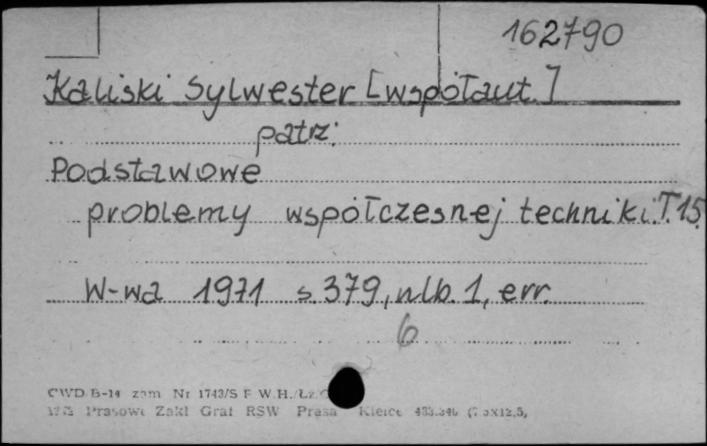 162790
Kaliski Sylwester [współaut.]
patrz:
Podstawowe
problemy współczesnej techniki. T. 15.
W-wa 1971 s. 379, nlb. 1, err.
6
CWD B-14 zam. Nr 1743/S F. W. H.
Prasowe Zakł. Graf. RSW Prasa Kielce